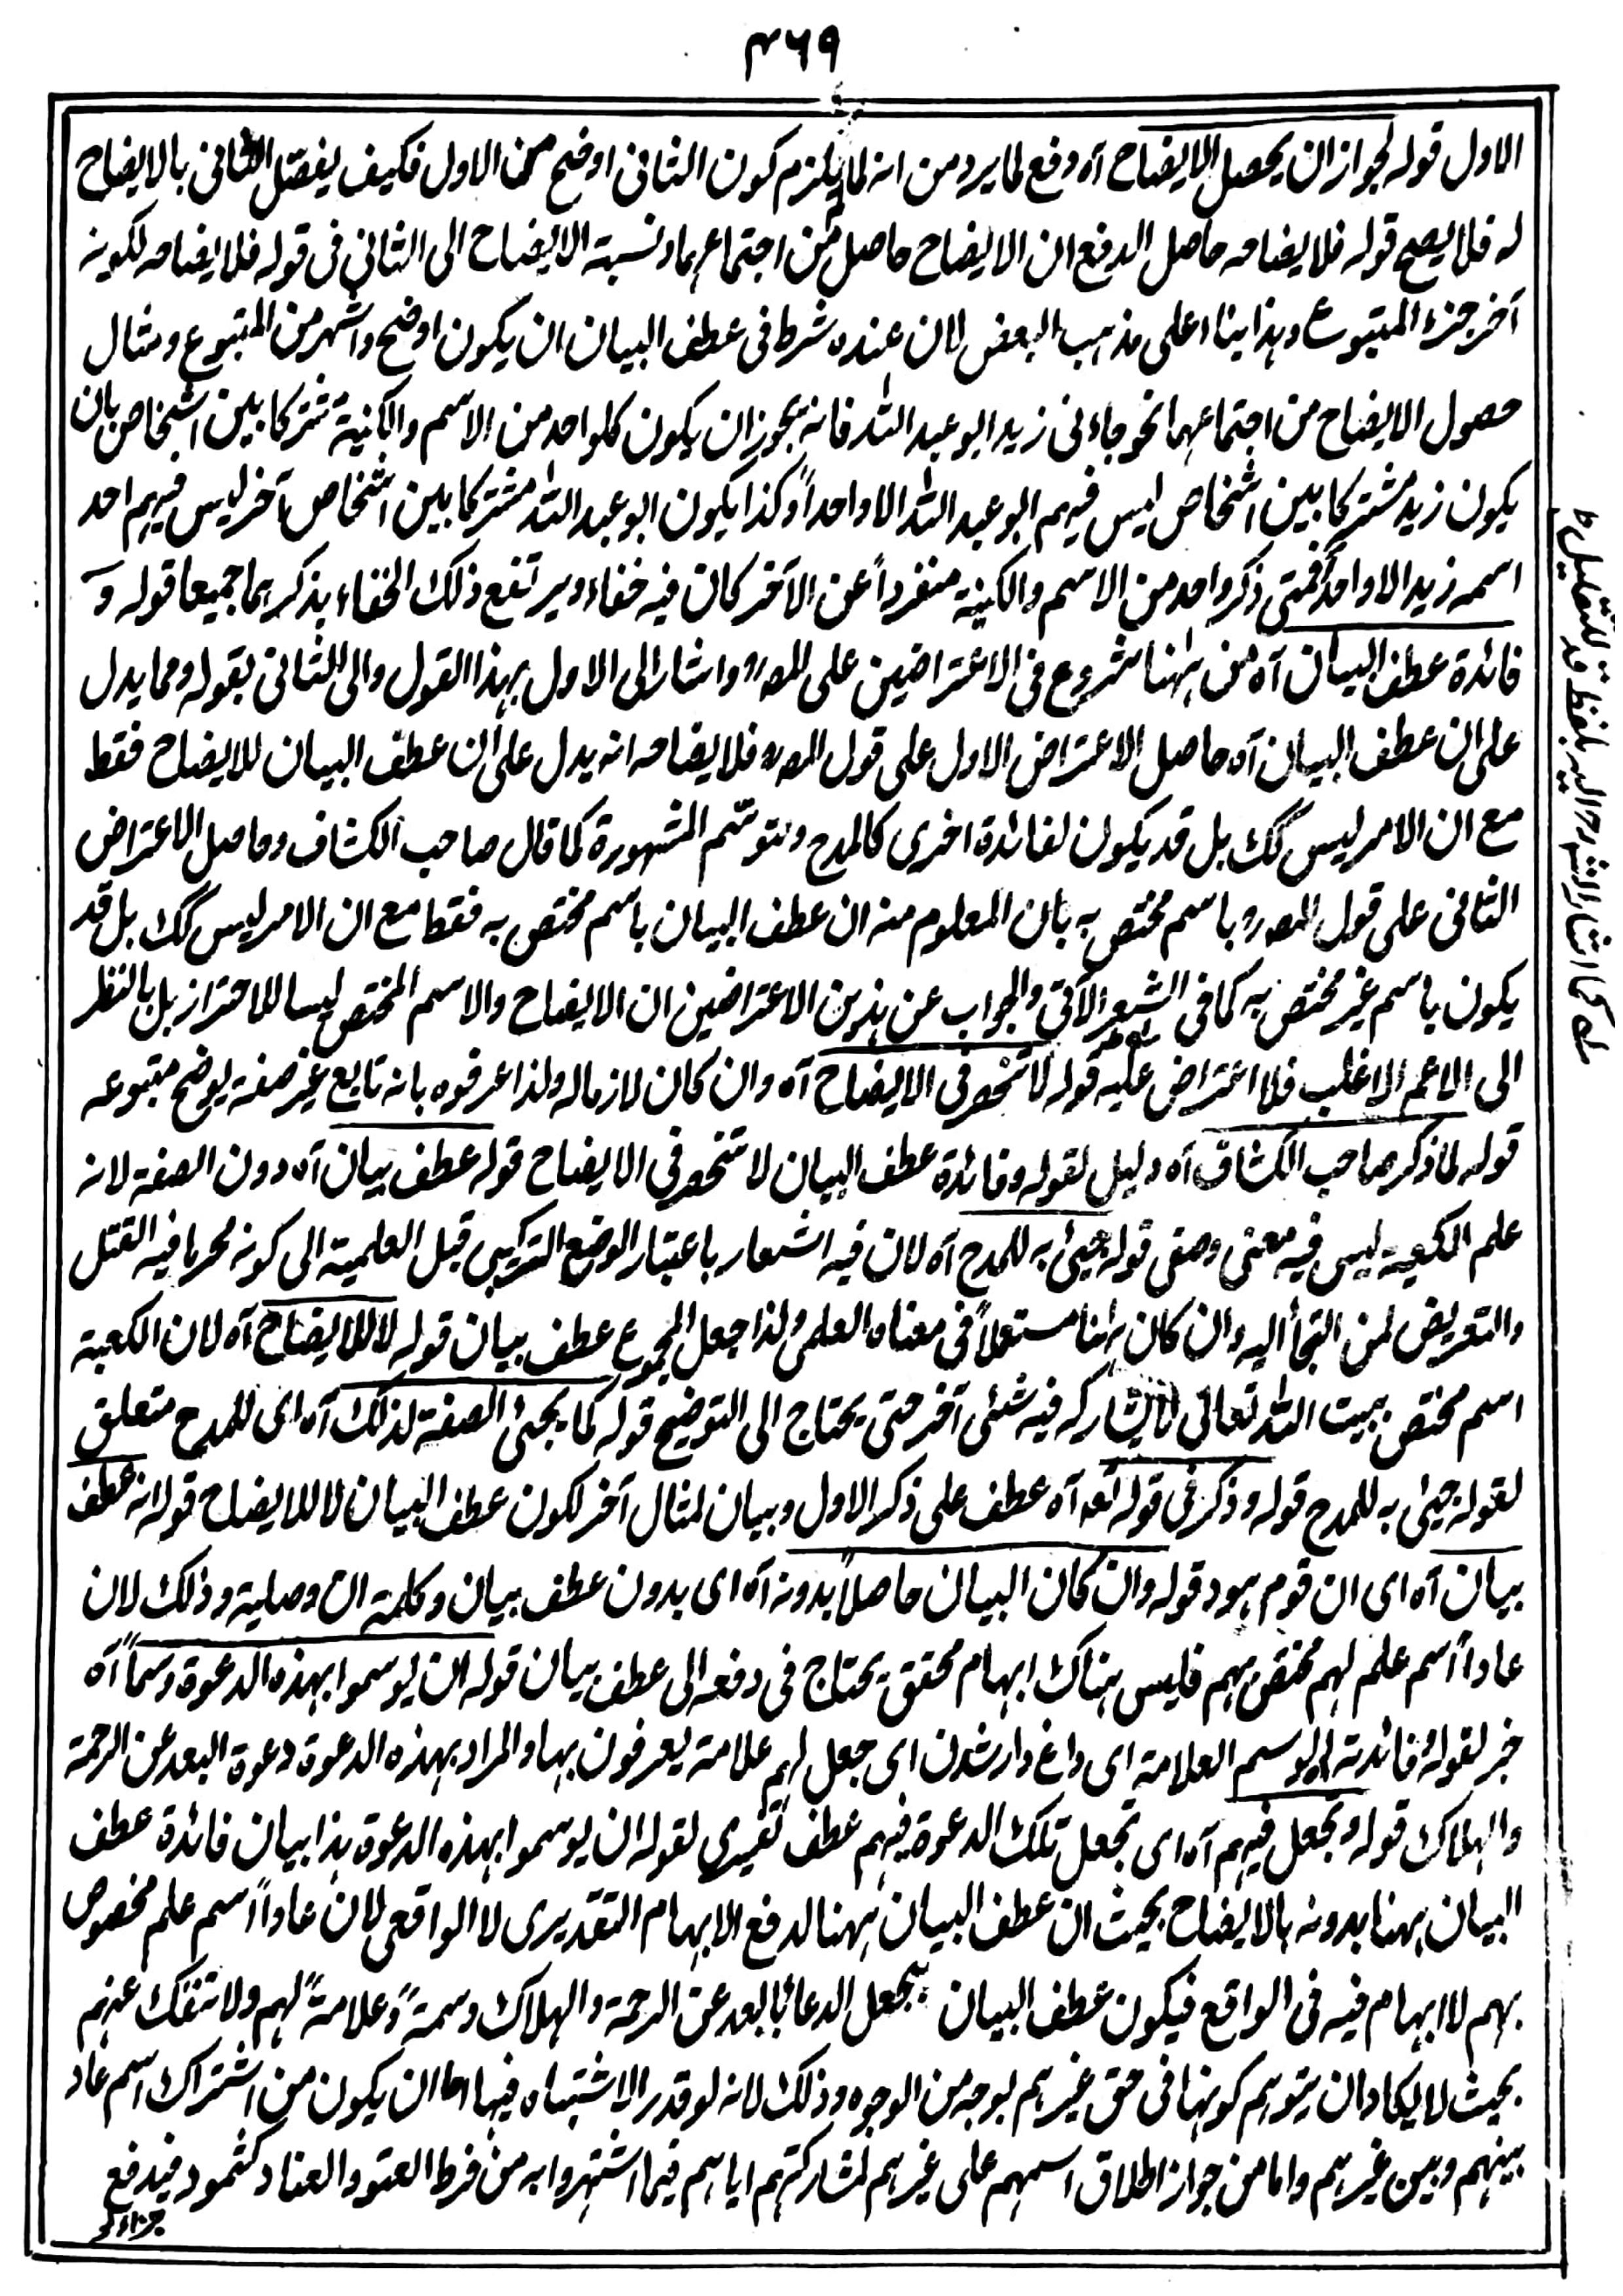 ٤٦٩
الاول قوله لجواز ان يحصل الايضاح آه دفع لما يرد من انه لا يلزم كون الثانى اوضح من الاول فكيف يفصّل الثانى بالايضاح
له فلا يصح قوله فلايضاحه حاصل الدفع ان الايضاح حاصل من اجتماعهما ونسبة الايضاح الى الثانى فى قوله فلايضاحه لكونه
آخر جزء المتبوع وهذا بناء على مذهب البعض لان عنده شرط فى عطف البيان ان يكون اوضح واشهر من المتبوع ومثال
حصول الايضاح من اجتماعهما نحو جاءنى زيد ابو عبد الله فانه يجوز ان يكون كلواحد من الاسم والكنية مشتركا بين اشخاص بان
يكون زيد مشتركا بين اشخاص ليس فيهم ابو عبد الله الا واحداً وكذا يكون ابو عبد الله مشتركا بين اشخاص آخر ليس فيهم احد
اسمه زيد الا واحد فمتى ذكر واحد من الاسم والكنية منفرداً عن الآخر كان فيه خفاء ويرتفع ذلك الخفاء بذكرهما جميعا قوله و
فائدة عطف البيان آه من ههنا شروع فى الاعتراضين على المصرح واشار الى الاول بهذا القول والى الثانى بقوله ومما يدل
على ان عطف البيان آه حاصل الاعتراض الاول على قول المصرح فلايضاحه انه يدل على ان عطف البيان للايضاح فقط
مع ان الامر ليس كك بل قد يكون لفائدة اخرى كالمدح وتوسّم المشهورة كما قال صاحب الكشاف وحاصل الاعتراض
الثانى على قول المصرح باسم مختص به بان المعلوم منه ان عطف البيان باسم مختص به فقط مع ان الامر ليس كك بل قد
يكون باسم غير مختص به كما فى الشعر الآتى والجواب عن هذين الاعتراضين ان الايضاح والاسم المختص ليسا للاحتراز بل بالنظر
الى الاعم الاغلب فلا اعتراض عليه قوله لا تنحصر فى الايضاح آه وان كان لازما له ولذا عرفوه بانه تابع غير صفة يوضح متبوعه
قوله لما ذكر صاحب الكشاف آه دليل لقوله وفائدة عطف البيان لا تنحصر فى الايضاح قوله عطف بيان آه دون الصفة لانه
علم الكعبة ليس فيه معنى وصفى قوله جيئ به للمدح آه لان فيه اشعار باعتبار الوضع التركيبى قبل العلمية الى كونه محرما فيه القتل
والتعريض لمن التجأ اليه وان كان ههنا مستعملاً فى معناه العلمى ولذا جعل المجموع عطف بيان قوله لا للايضاح آه لان الكعبة
اسم مختص ببيت الله تعالى لا يشاركه فيه شئى آخر حتى يحتاج الى التوضيح قوله كما يجئ الصفة لذلك آه اى للمدح متعلق
لقوله جيئ به للمدح قوله وذكر فى قوله تعه آه عطف على ذكر الاول وبيان لمثال آخر لكون عطف البيان لا للايضاح قوله انه عطف
بيان آه اى ان قوم هود قوله وان كان البيان حاصلاً بدونه آه اى بدون عطف بيان وكلمة ان وصلية وذلك لان
عاداً اسم علم لهم مختص بهم فليس هناك ابهام محقق يحتاج فى دفعه الى عطف بيان قوله ان يوسموا بهذه الدعوة وسماً آه
خبر لقوله وفائدته الوسم العلامة اى داغ دار شدن اى جعل لهم علامة يعرفون بها والمراد بهذه الدعوة دعوة البعد عن الرحمة
والهلاك قوله وتجعل فيهم آه اى تجعل تلك الدعوة فيهم عطف تفسيرى لقوله ان يوسموا بهذه الدعوة هذا بيان فائدة عطف
البيان ههنا بدونه بالايضاح بحيث ان عطف البيان ههنا لدفع الابهام التقديرى لا الواقعى لان عاداً اسم علم مخصوص
بهم لا ابهام فيه فى الواقع فيكون عطف البيان يجعل الدعاء بالبعد عن الرحمة والهلاك وسمة وعلامة لهم ولا تنفك عنهم
بحيث لا يكاد ان يتوهم كونها فى حق غيرهم بوجه من الوجوه وذلك لانه لو قدر الاشتباه فيها اما ان يكون من اشتراك اسم عاد
بينهم وبين غيرهم واما من جواز اطلاق اسمهم على غيرهم لمشاركتهم اياهم فيما اشتهروا به من فرط العتو والعناد كثمود فيدفع
كما اشار الشارح اليه بلفظ قد للتقليل